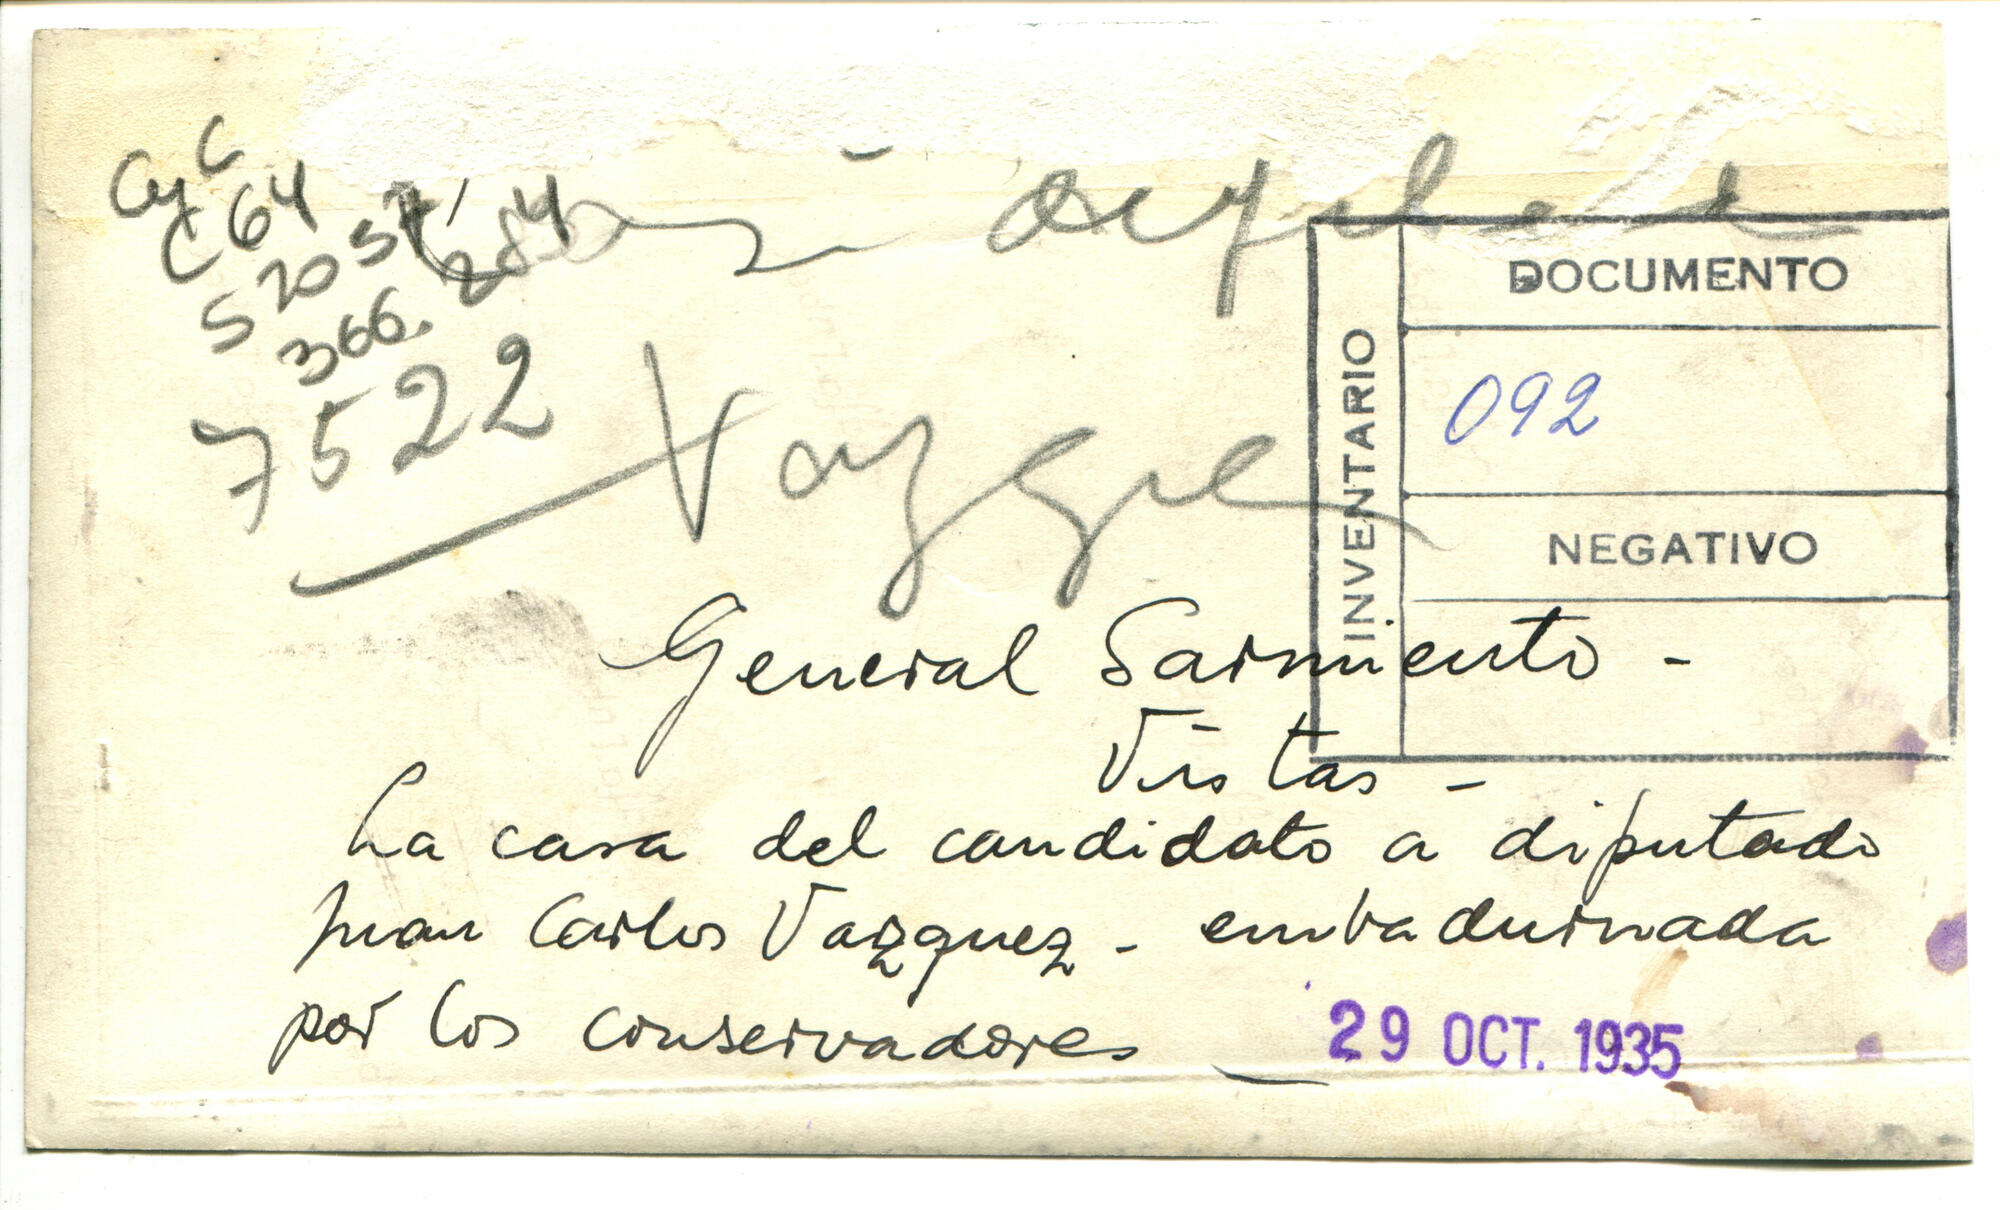 CyC
C 64
S 20 57
366.284
7522
DOCUMENTO
INVENTARIO
092
NEGATIVO
General Sarmiento -
Vistas -
La casa del candidato a diputado
Juan Carlos Vazquez - embadurnada
por los conservadores
29 OCT. 1935